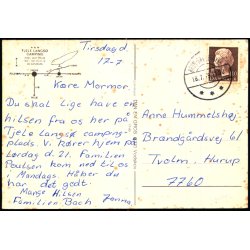 TJELE LANGSØ
CAMPING
Tirsdag d.
12-7
Kære Mormor.
Du skal lige have en
hilsen fra os her på
Tjele Langsø camping-
plads. Vi kører hjem på
Lørdag d. 21. Familien
Poulsen kom ned til os
i Mandags. Håber du
har det godt.
Mange Hilsen
Familien Bach Janna.
Anne Hummelshøj
Brændgårdsvej
Tvolm. Hurup
7760